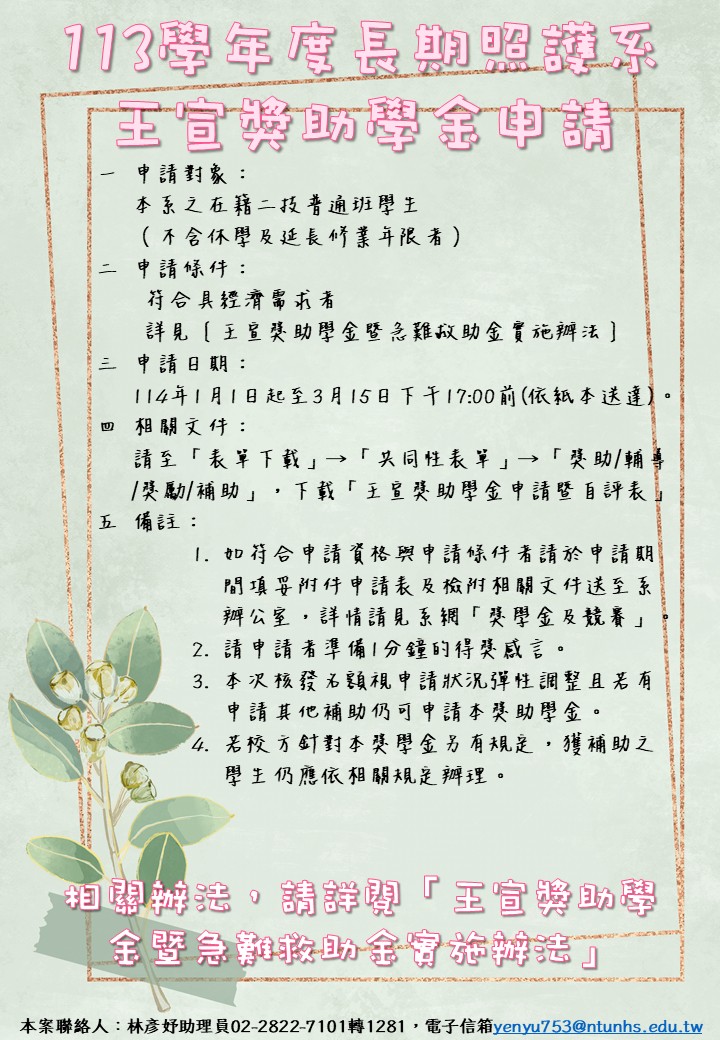 113學年度長期照護系
王宣獎助學金申請
一 申請對象：
本系之在籍二技普通班學生
（不含休學及延長修業年限者）
二 申請條件：
符合具經濟需求者
詳見〔王宣獎助學金暨急難救助金實施辦法〕
三 申請日期：
114年1月1日起至3月15日下午17:00前(依紙本送達)。
四 相關文件：
請至「表單下載」→「共同性表單」→「獎助/輔導
/獎勵/補助」，下載「王宣獎助學金申請暨自評表」
五 備註：
1. 如符合申請資格與申請條件者請於申請期
間填妥附件申請表及檢附相關文件送至系
辦公室，詳情請見系網「獎學金及競賽」。
2. 請申請者準備1分鐘的得獎感言。
3. 本次核發名額視申請狀況彈性調整且若有
申請其他補助仍可申請本獎助學金。
4. 若校方針對本獎學金另有規定，獲補助之
學生仍應依相關規定辦理。
相關辦法，請詳閱「王宣獎助學
金暨急難救助金實施辦法」
本案聯絡人：林彥妤助理員02-2822-7101轉1281，電子信箱yenyu753@ntunhs.edu.tw